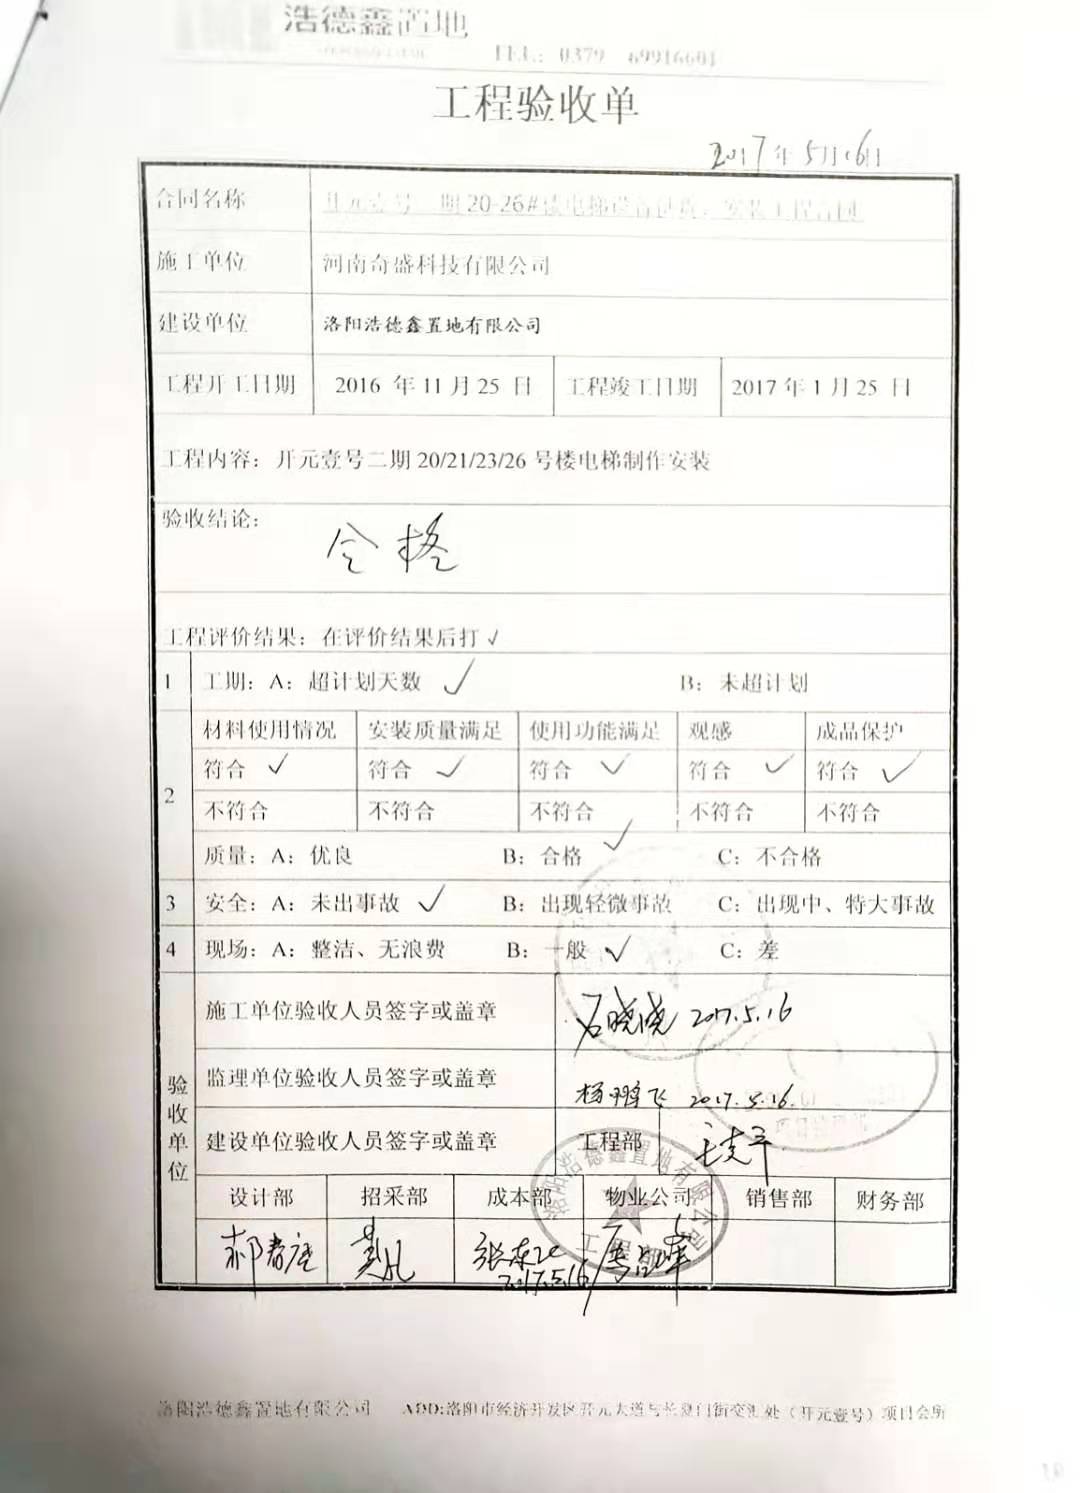 浩德鑫置地
TEL: 0379 69916601
工程验收单
2017年5月16日
合同名称 开元壹号二期20-26#楼电梯设备供货、安装工程合同
施工单位 河南奇盛科技有限公司
建设单位 洛阳浩德鑫置地有限公司
工程开工日期 2016 年 11 月 25 日 工程竣工日期 2017 年 1 月 25 日
工程内容：开元壹号二期 20/21/23/26 号楼电梯制作安装
验收结论：
合格
工程评价结果：在评价结果后打√
1 工期：A：超计划天数 √ B：未超计划
材料使用情况 安装质量满足 使用功能满足 观感 成品保护
符合 √ 符合 √ 符合 √ 符合 √ 符合 √
2
不符合 不符合 不符合 不符合 不符合
质量：A：优良 B：合格 √ C：不合格
3 安全：A：未出事故 √ B：出现轻微事故 C：出现中、特大事故
4 现场：A：整洁、无浪费 B：一般 √ C：差
验收单位
施工单位验收人员签字或盖章 石晓晓 2017.5.16
监理单位验收人员签字或盖章 杨鹏飞 2017.5.16.
建设单位验收人员签字或盖章 工程部
设计部 招采部 成本部 物业公司 销售部 财务部
2017.5.16
洛阳浩德鑫置地有限公司
工程部
洛阳浩德鑫置地有限公司 ADD:洛阳市经济开发区开元大道与长夏门街交汇处（开元壹号）项目会所